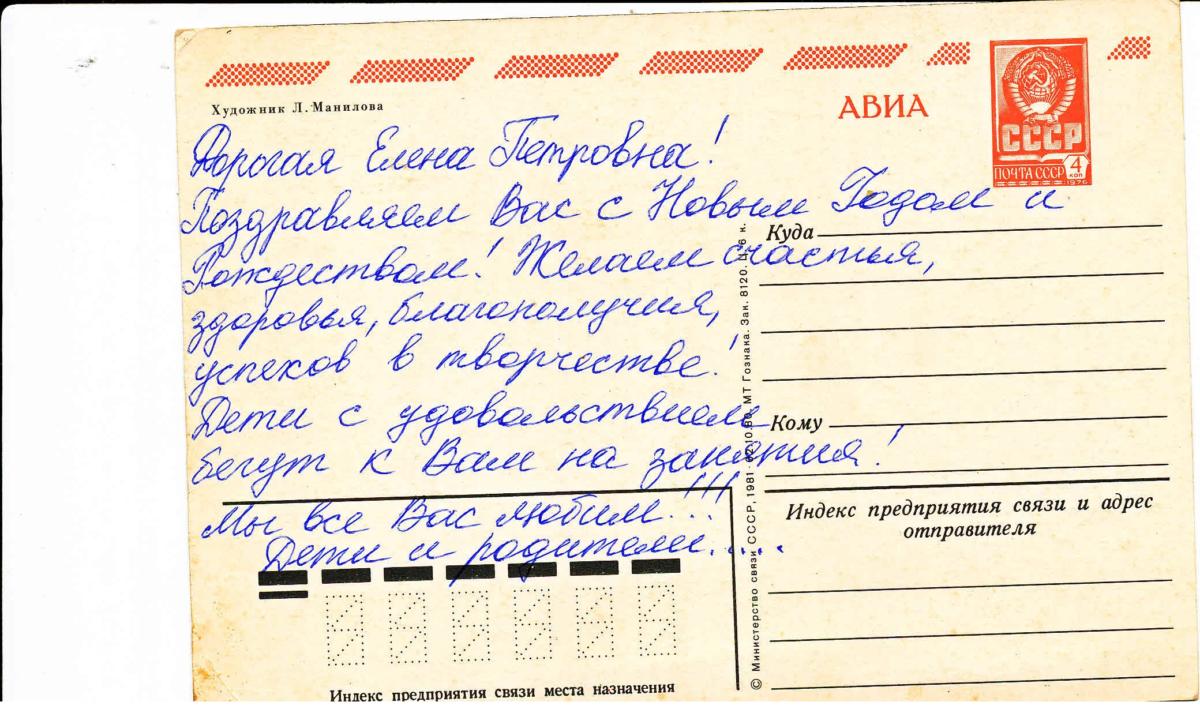 Художник Л. Манилова
АВИА
СССР
ПОЧТА СССР 4 коп
1976
Дорогая Елена Петровна!
Поздравляем Вас с Новым Годом и
Рождеством! Желаем счастья,
здоровья, благополучия,
успехов в творчестве!
Дети с удовольствием
бегут к Вам на занятия!
Мы все Вас любим...!!!
Дети и родители.....
Куда
Кому
Индекс предприятия связи и адрес
отправителя
Индекс предприятия связи места назначения
© Министерство связи СССР, 1981 МТ Гознака. Зак. 8120. Ц. 6 к.